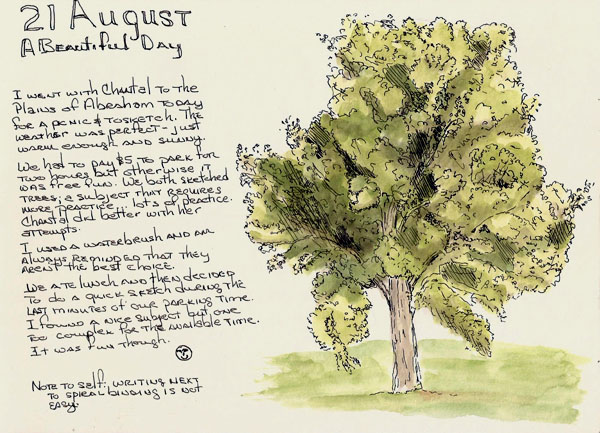 21 August
A Beautiful Day
I went with Chantal to the
Plains of Abraham today
for a picnic & to sketch. The
weather was perfect - just
warm enough and sunny.
We had to pay $5 to park for
two hours but otherwise it
was free fun. We both sketched
trees, a subject that requires
more practice... lots of practice.
Chantal did better with her
attempts.
I used a waterbrush and am
always reminded that they
aren't the best choice.
We ate lunch and then decided
to do a quick sketch during the
last minutes of our parking time.
I found a nice subject but one
too complex for the available time.
It was fun though.
Note to self: writing next
to spiral binding is not
easy.